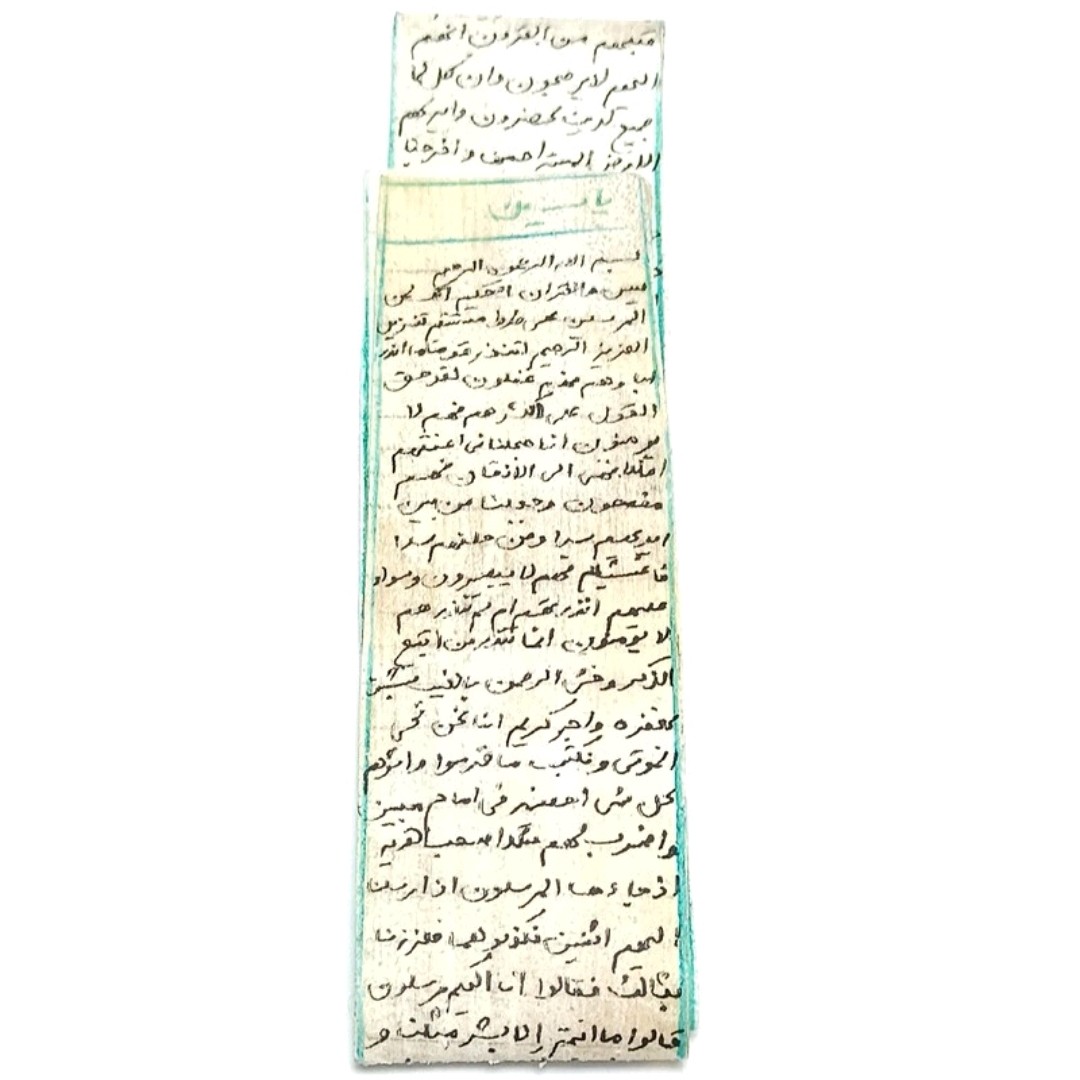 قبلهم من القرون انهم
اليهم لا يرجعون وان كل لما
جميع لدينا محضرون واية لهم
الارض الميتة احيينها واخرجنا
ياسين
بسم الله الرحمن الرحيم
يس والقران الحكيم انك لمن
المرسلين على صراط مستقيم تنزيل
العزيز الرحيم لتنذر قوما ما انذر
اباوهم فهم غفلون لقد حق
القول على اكثرهم فهم لا
يومنون انا جعلنا في اعنقهم
اغللا فهى الى الأذقان فهم
مقمحون وجعلنا من بين
ايديهم سدا ومن خلفهم سدا
فاغشينهم فهم لا يبصرون وسواء
عليهم انذرتهم ام لم تنذرهم
لا يومنون انما تنذر من اتبع
الذكر وخشى الرحمن بالغيب فبشره
بمغفره واجر كريم انا نحن نحى
الموتى ونكتب ما قدموا واثرهم
كل شى احصينه فى امام مبين
واضرب لهم مثلا اصحب القرية
اذ جاءها المرسلون اذ ارسلنا
اليهم اثنين فكذبوهما فعززنا
بثالث فقالوا انا اليكم مرسلون
قالوا ما انتم إلا بشر مثلنا و